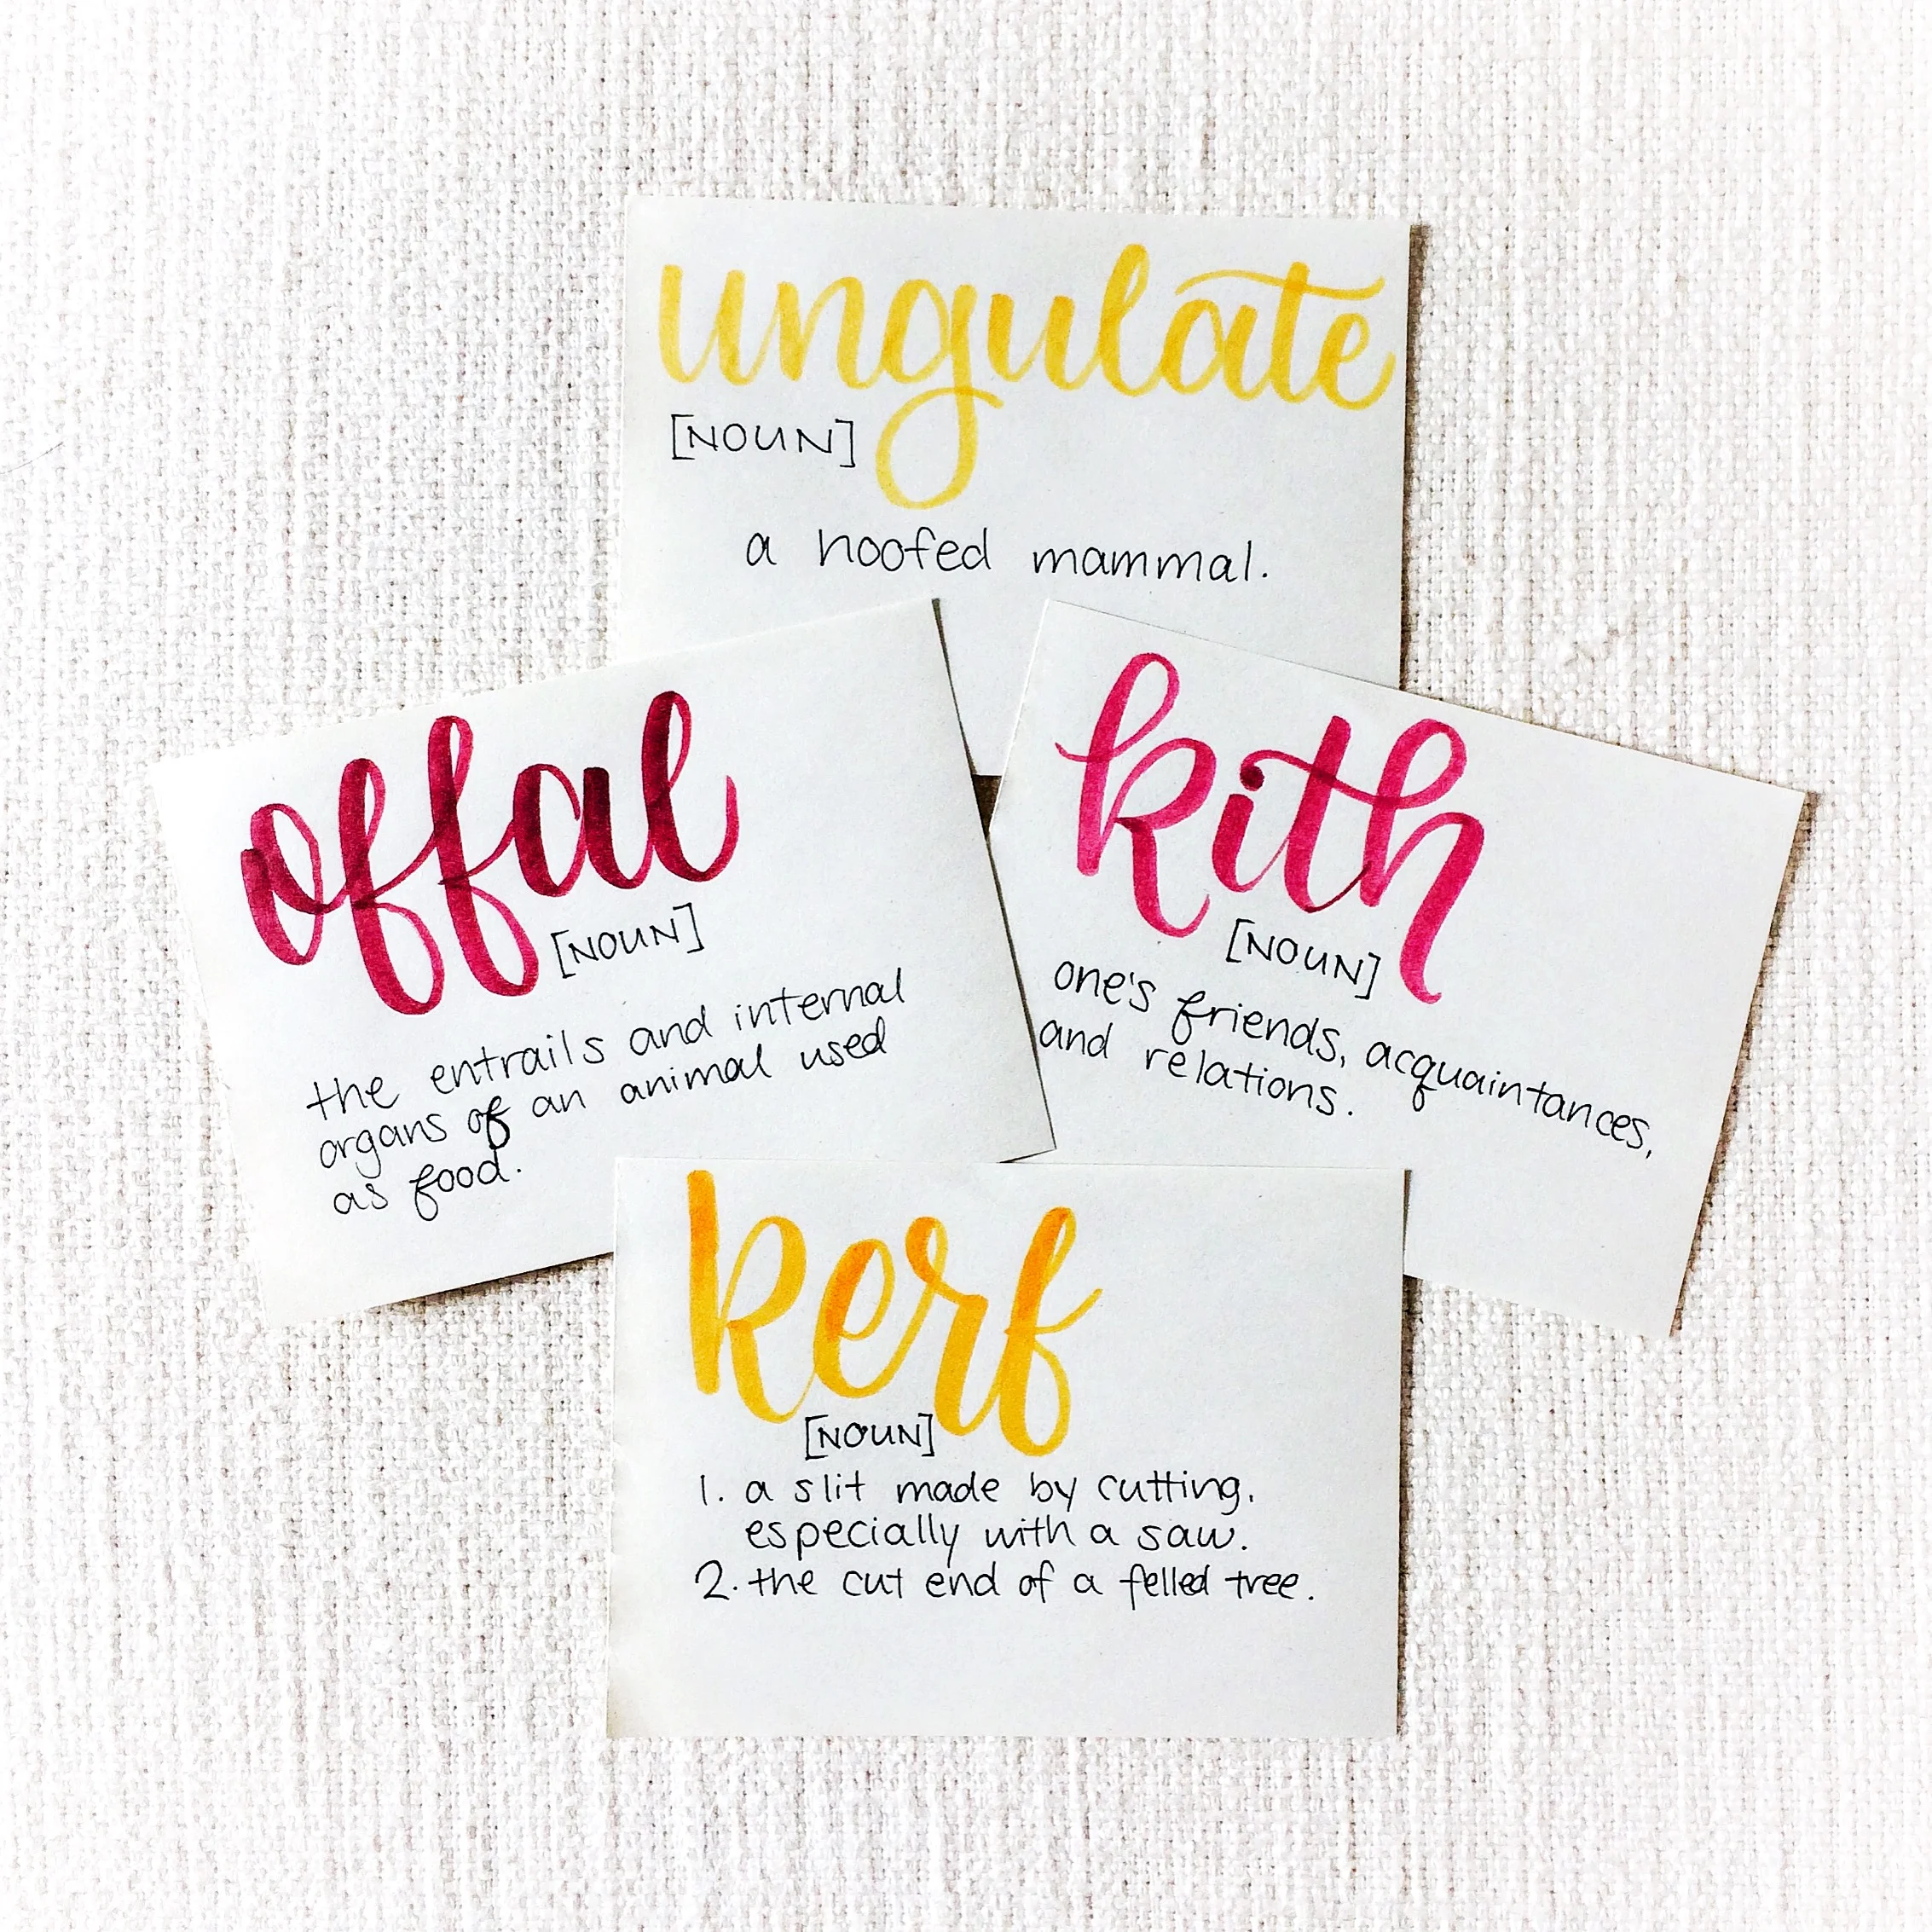 ungulate
[NOUN]
a hoofed mammal.
offal
[NOUN]
the entrails and internal
organs of an animal used
as food.
kith
[NOUN]
one's friends, acquaintances,
and relations.
kerf
[NOUN]
1. a slit made by cutting,
especially with a saw.
2. the cut end of a felled tree.